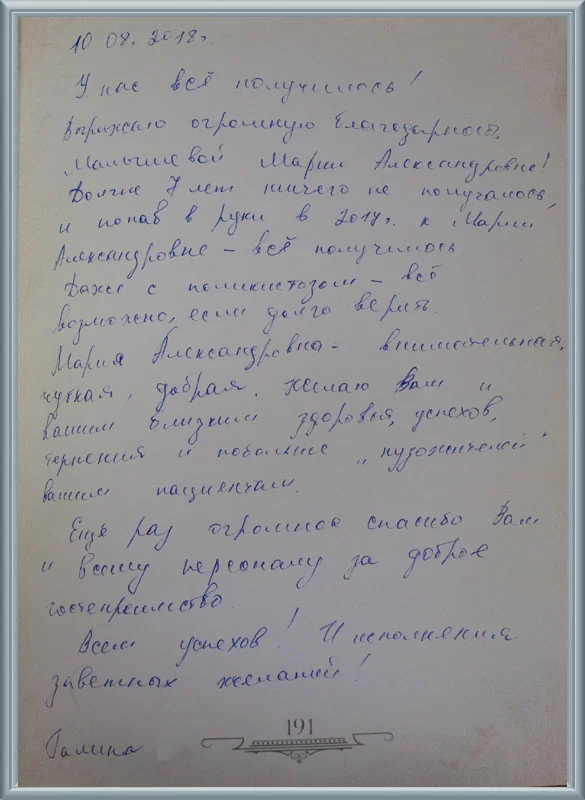 10 08. 2018г.
У нас всё получилось!
Выражаю огромную благодарность
Малышевой Марии Александровне!
Долгие 7 лет ничего не получалось,
и попав в руки в 2017г. к Марии
Александровне – всё получилось.
Даже с поликистозом – всё
возможно, если долго верить.
Мария Александровна - внимательная,
чуткая, добрая. Желаю Вам и
вашим близким здоровья, успехов,
терпения и побольше „пузожителей"
вашим пациенткам.
Ещё раз огромное спасибо Вам
и всему персоналу за доброе
гостеприимство.
Всем успехов! И исполнения
заветных желаний!
191
Галина